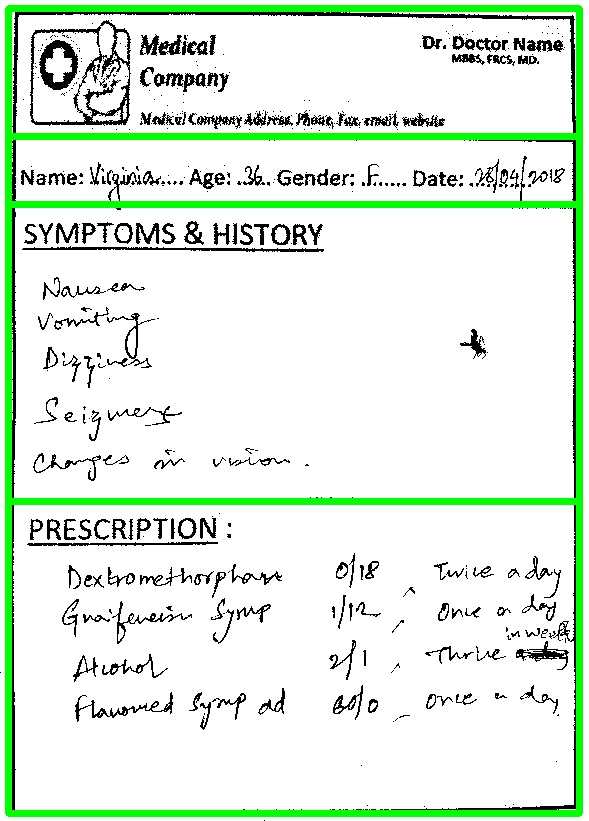 Medical
Company
Dr. Doctor Name
MBBS, FRCS, MD.
Medical Company Address, Phone, Fax, email, website
Name: Virginia..... Age: .36.. Gender: .F...... Date: .28/04/2018
SYMPTOMS & HISTORY
Nausea
Vomiting
Dizziness
Seizures
Changes in vision.
PRESCRIPTION :
Dextromethorphane 0/18, Twice a day
Guaifenesin Syrup 1/12, Once a day
Alcohol 2/1, Thrice in week
Flavoured Syrup ad 60/0 - Once a day